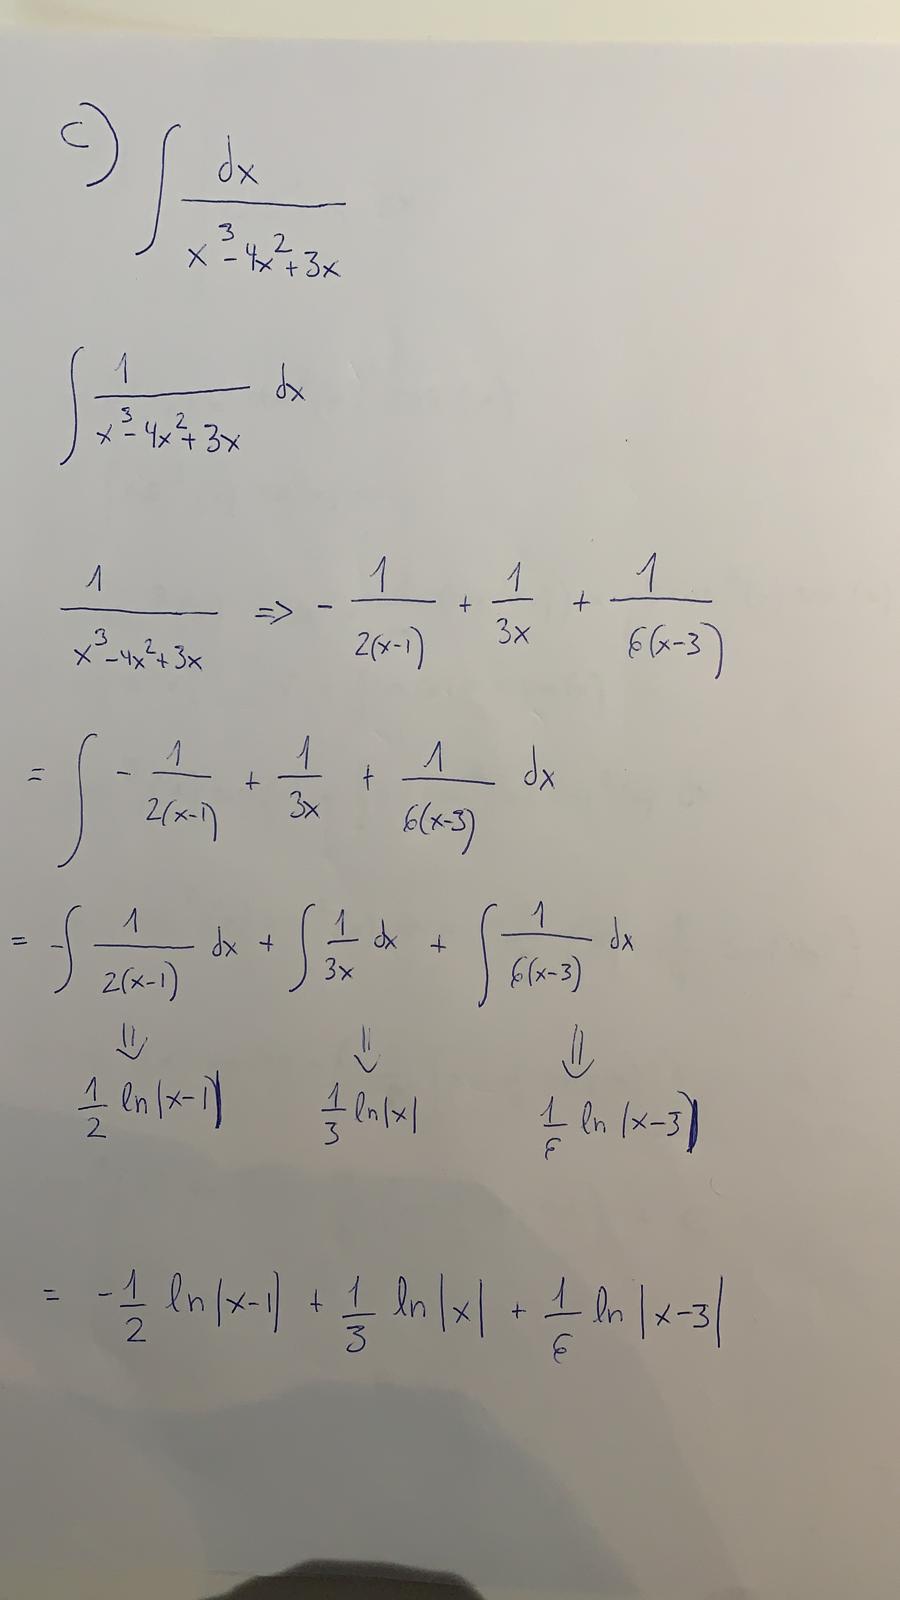 c) ∫ dx / (x³ - 4x² + 3x)
∫ 1 / (x³ - 4x² + 3x) dx
1 / (x³ - 4x² + 3x) ⇒ - 1 / (2(x-1)) + 1 / (3x) + 1 / (6(x-3))
= ∫ - 1 / (2(x-1)) + 1 / (3x) + 1 / (6(x-3)) dx
= -∫ 1 / (2(x-1)) dx + ∫ 1 / (3x) dx + ∫ 1 / (6(x-3)) dx
⇓ ⇓ ⇓
1/2 ln|x-1| 1/3 ln|x| 1/6 ln|x-3|
= - 1/2 ln|x-1| + 1/3 ln|x| + 1/6 ln|x-3|